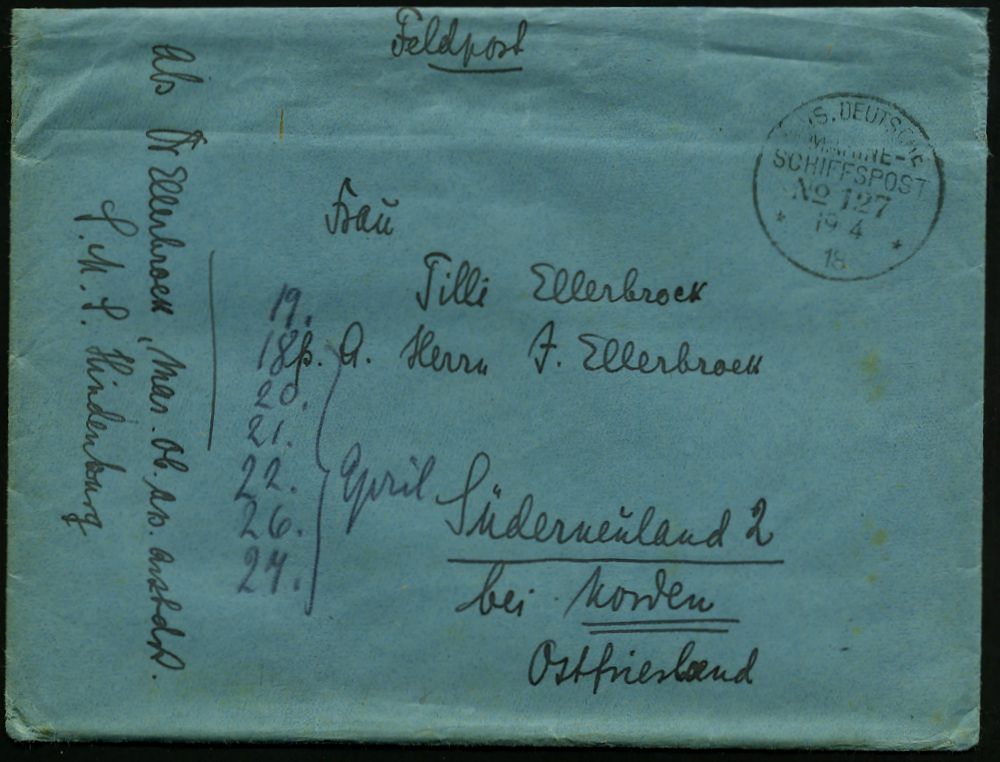 Feldpost
Frau
Tilli Ellerbrock
p. A. Herrn J. Ellerbrock
Süderneuland 2
bei Norden
Ostfriesland
19.
18
20.
21.
22.
26.
27.
April
Abs Dr Ellerbrock, Mar. Ob. As.
S. M. S. Hindenburg
S. DEUTSCHE
MARINE-
SCHIFFSPOST
No 127
* 19 4 *
18